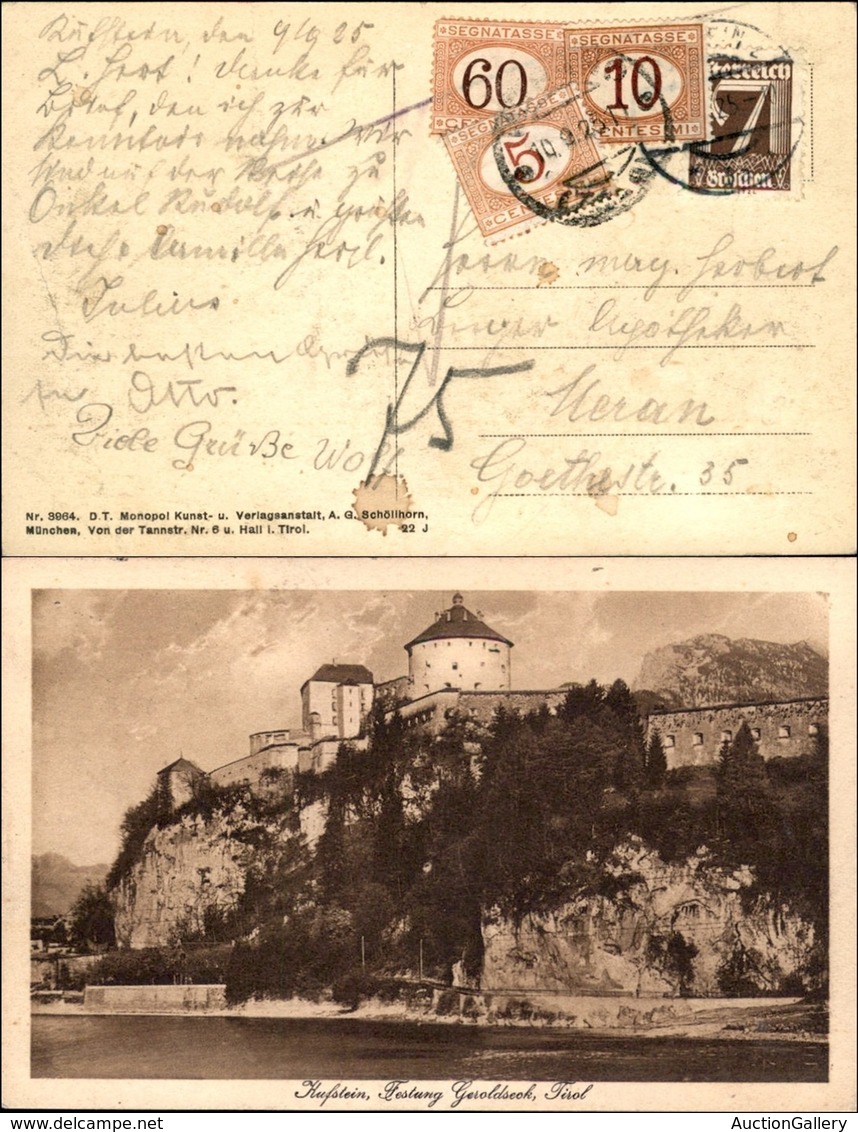 Kufstein, den 9/9 25
L. Herl! Danke für
Brief, den ich zur
Kenntnis nahm. Wir
sind auf der Reise zu
Onkel Rudolf u. grüßen
dich Camilla Herzl.
Julius
Die besten Grüße
Otto.
Viele Grüße Wolf
SEGNATASSE
60
SEGNATASSE
10
CENTESIMI
SEGNATASSE
5
10.9.25
Österreich
7
Groschen
Herrn mag. Herbert
Apotheker
Meran
Goethestr. 35
75
Nr. 3964. D.T. Monopol Kunst- u. Verlagsanstalt, A. G. Schöllhorn,
München, Von der Tannstr. Nr. 6 u. Hall i. Tirol. 22 J
Kufstein, Festung Geroldseck, Tirol
AuctionGallery